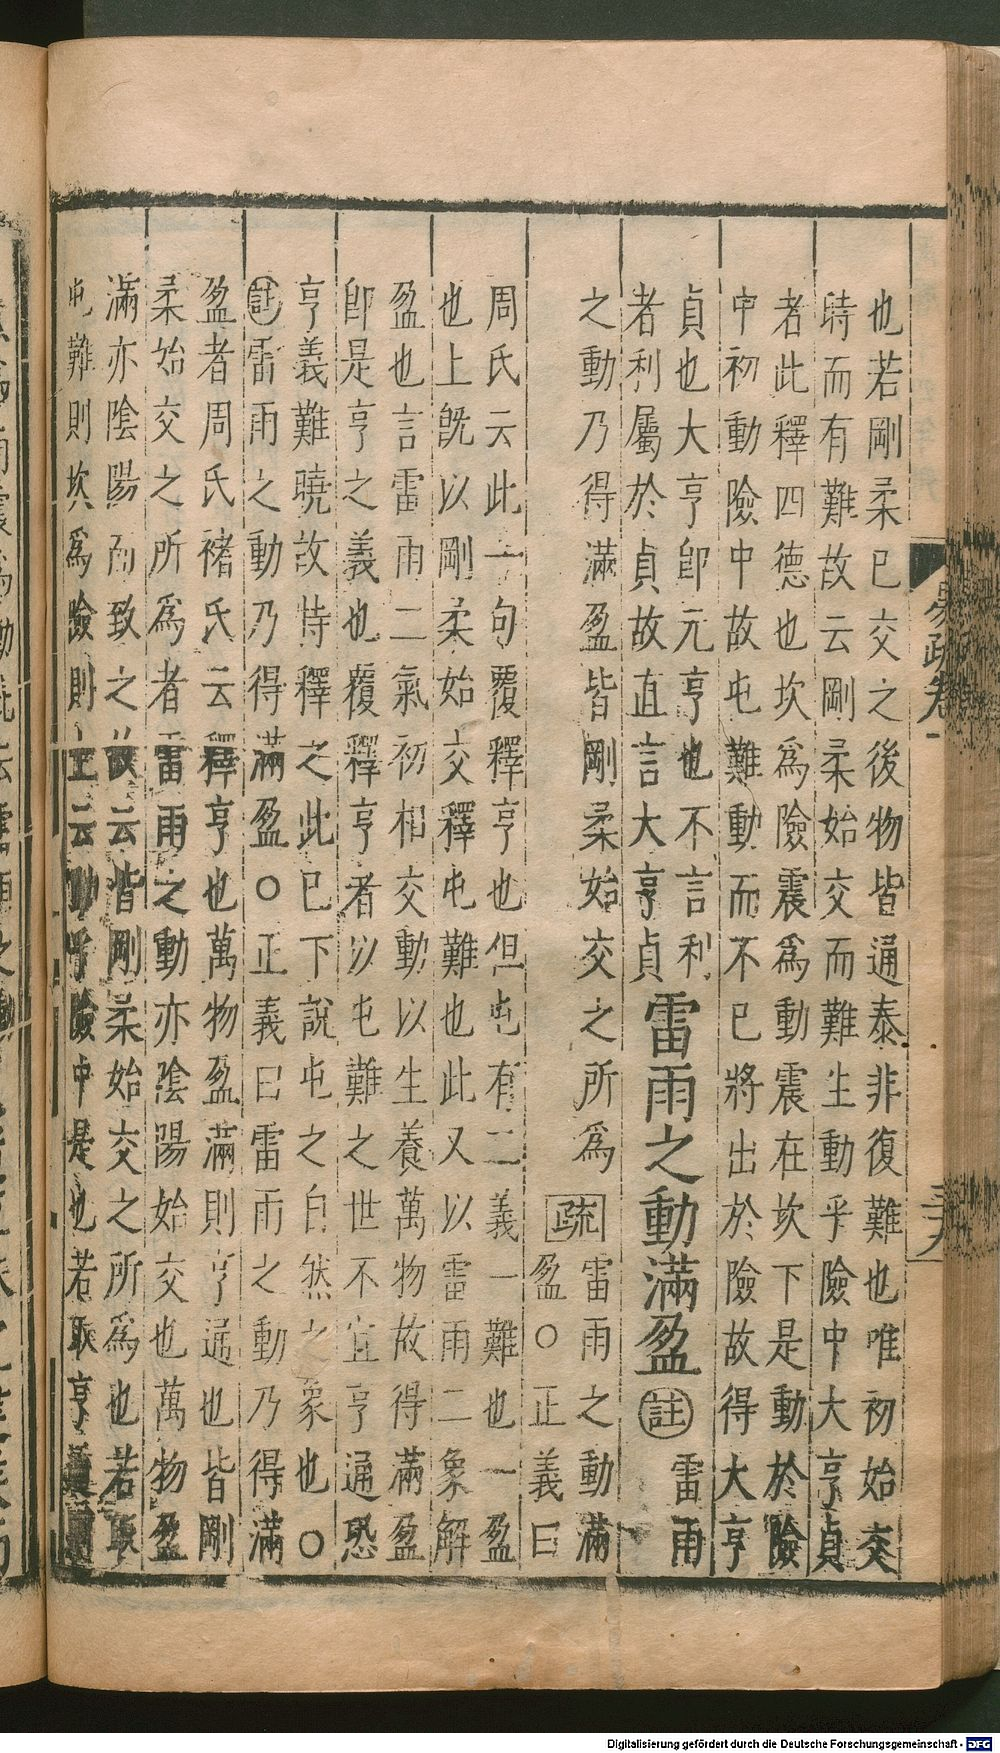 易疏卷一
三十九
也若剛柔已交之後物皆通泰非復難也唯初始交
時而有難故云剛柔始交而難生動乎險中大亨貞
者此釋四德也坎爲險震爲動震在坎下是動於險
中初動險中故屯難動而不已將出於險故得大亨
貞也大亨卽元亨也不言利
者利屬於貞故直言大亨貞
雷雨之動滿盈
註
雷雨
之動乃得滿盈皆剛柔始交之所爲
疏
雷雨之動滿
盈○正義曰
周氏云此一句覆釋亨也但屯有二義一難也一盈
也上旣以剛柔始交釋屯難也此又以雷雨二象解
盈也言雷雨二氣初相交動以生養萬物故得滿盈
卽是亨之義也覆釋亨者以屯難之世不宜亨通恐
亨義難曉故特釋之此已下說屯之自然之象也○
註雷雨之動乃得滿盈○正義曰雷雨之動乃得滿
盈者周氏褚氏云釋亨也萬物盈滿則亨通也皆剛
柔始交之所爲者雷雨之動亦陰陽始交也萬物盈
滿亦陰陽而致之故云皆剛柔始交之所爲也若取
屯難則坎爲險則上云動乎險中是也若取亨
Digitalisierung gefördert durch die Deutsche Forschungsgemeinschaft - DFG